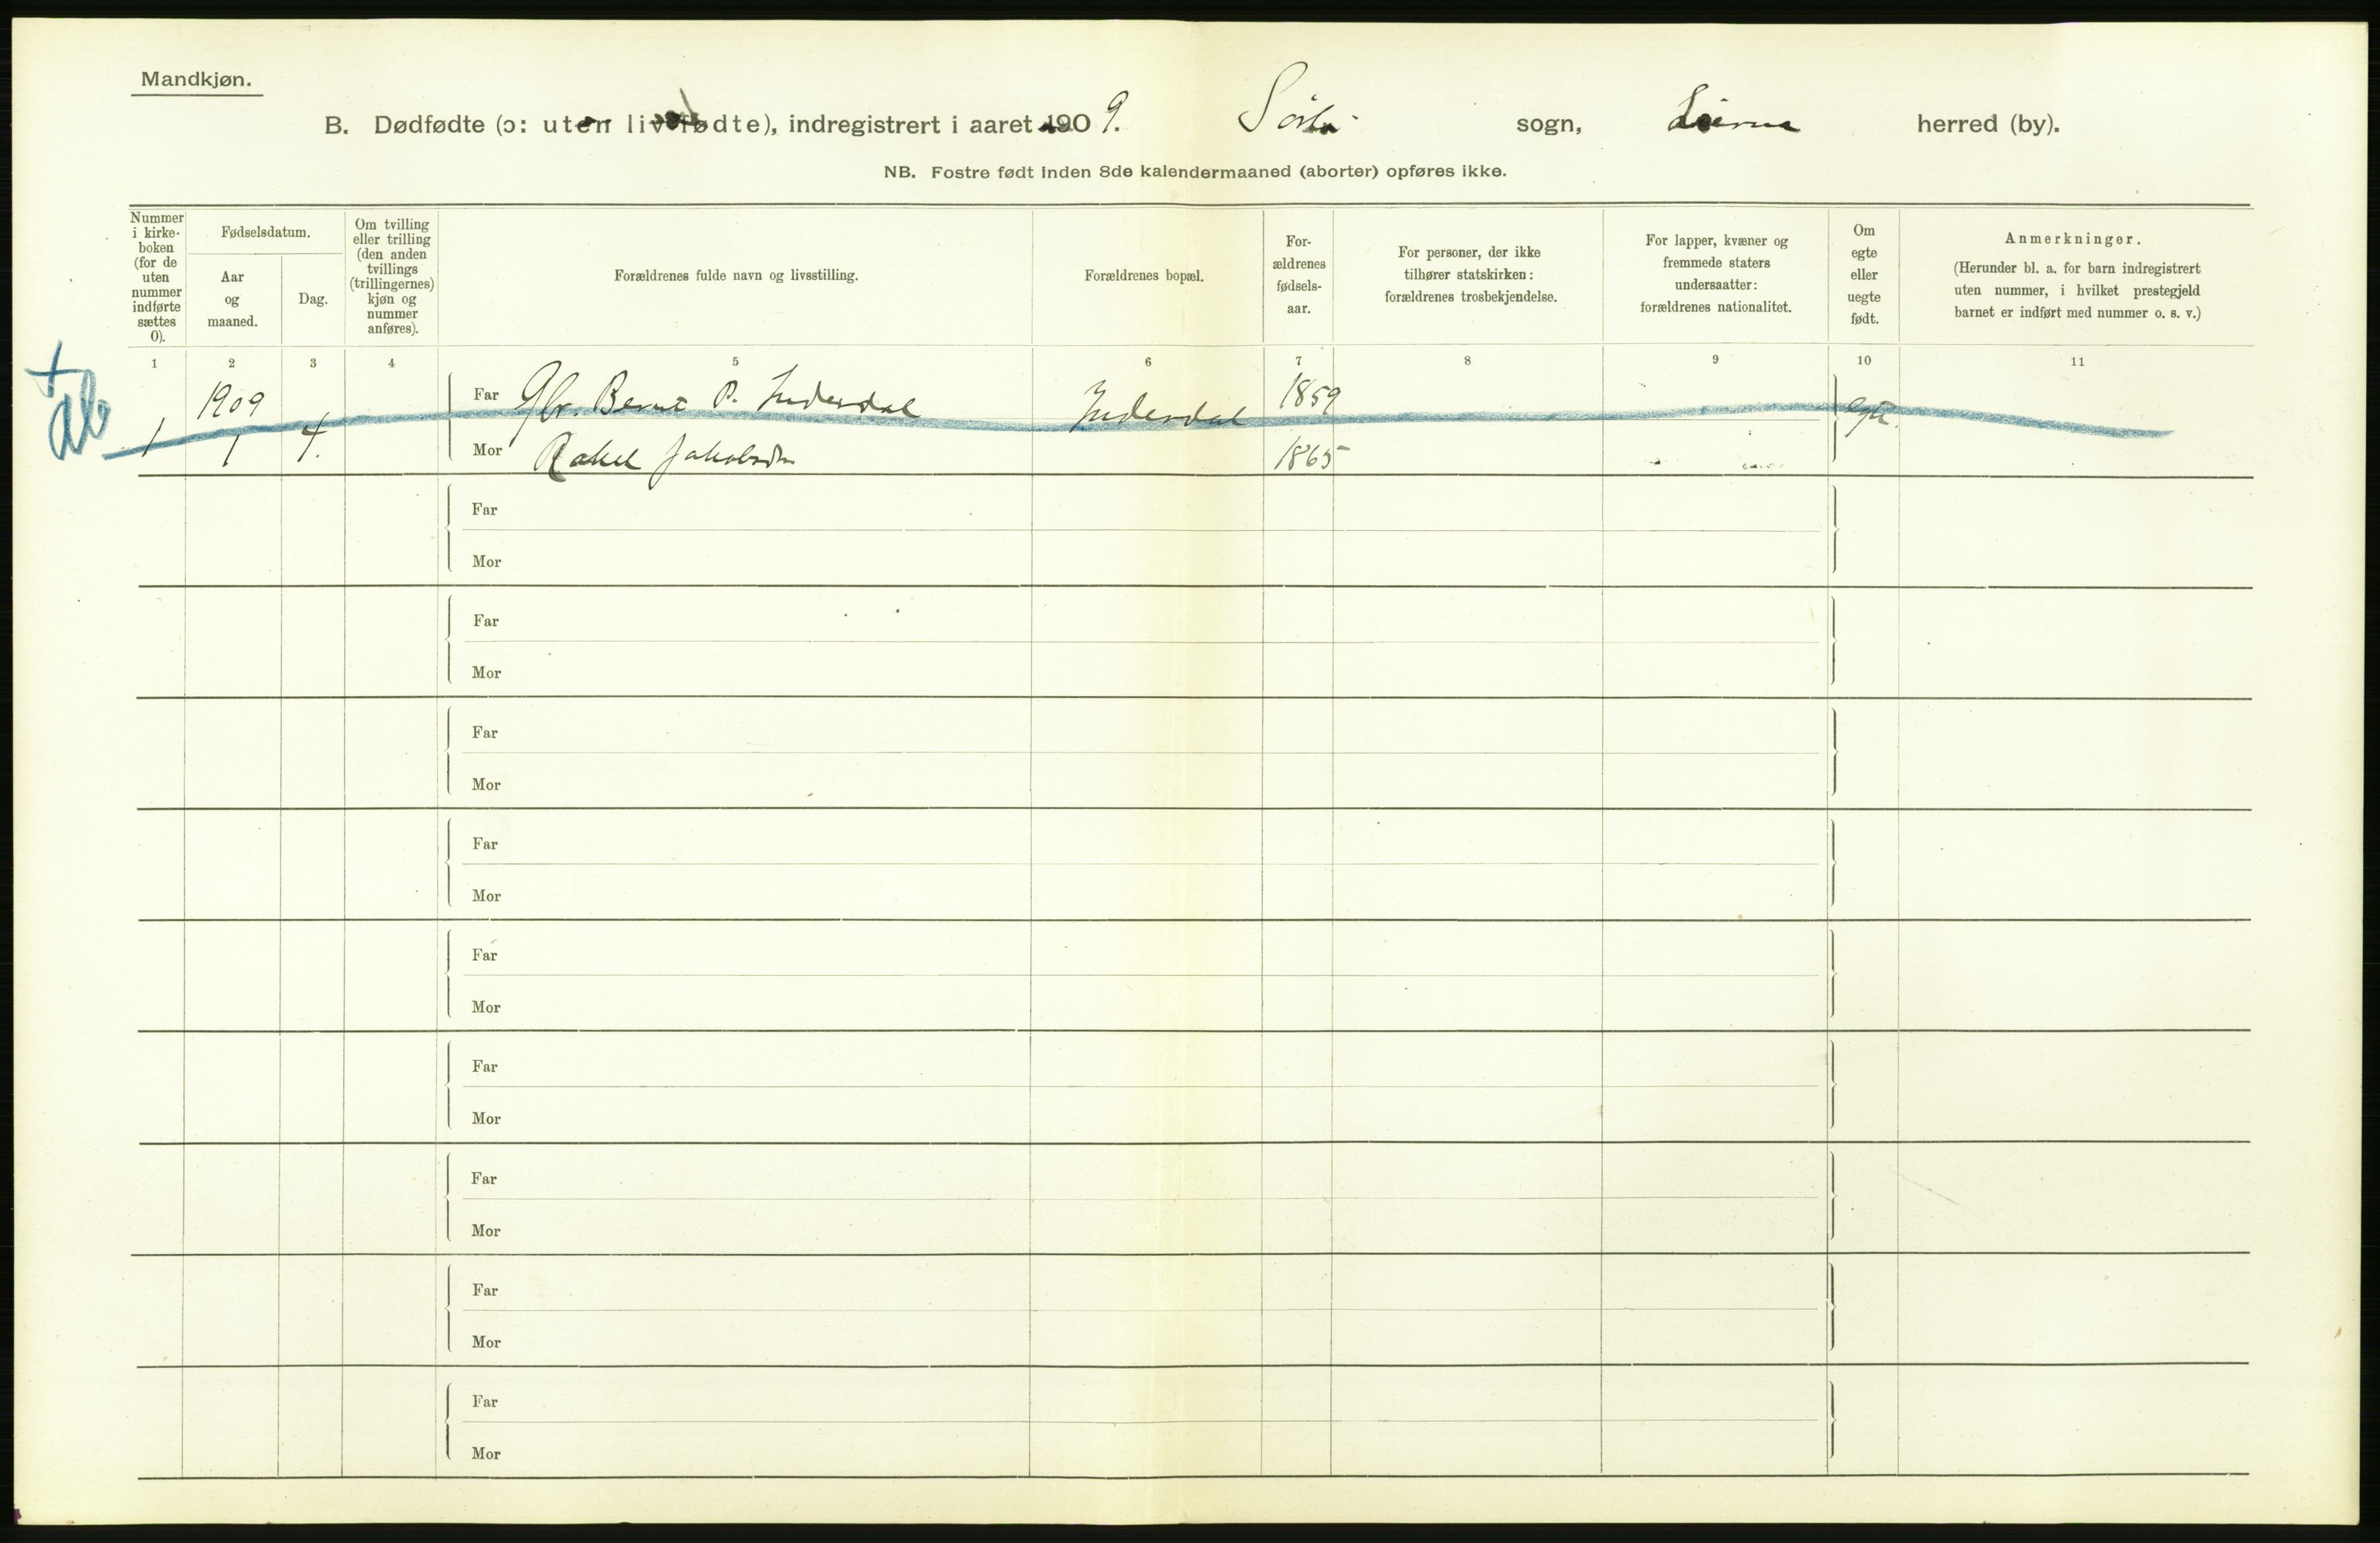 Mandkjøn.
B. Dødfødte (ɔ: uten livsfødte), indregistrert i aaret 1909. Sörli sogn, Lierne herred (by).
NB. Fostre født inden 8de kalendermaaned (aborter) opføres ikke.
Nummer i kirke-boken (for de uten nummer indførte sættes 0).
Fødselsdatum.
Aar og maaned.
Dag.
Om tvilling eller trilling (den anden tvillings (trillingernes) kjøn og nummer anføres).
Forældrenes fulde navn og livsstilling.
Forældrenes bopæl.
For-ældrenes fødsels-aar.
For personer, der ikke tilhører statskirken: forældrenes trosbekjendelse.
For lapper, kvæner og fremmede staters undersaatter: forældrenes nationalitet.
Om egte eller uegte født.
Anmerkninger.
(Herunder bl. a. for barn indregistrert uten nummer, i hvilket prestegjeld barnet er indført med nummer o. s. v.)
1 2 3 4 5 6 7 8 9 10 11
1909 Far Gbr. Bernt P. Inderdal Inderdal 1859 egte.
1 1 4. Mor Rakel Jakobsdr 1865
Far
Mor
Far
Mor
Far
Mor
Far
Mor
Far
Mor
Far
Mor
Far
Mor
Far
Mor
Far
Mor